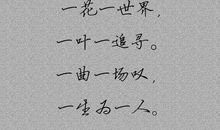 一花一世界，
一叶一追寻。
一曲一场叹，
一生为一人。